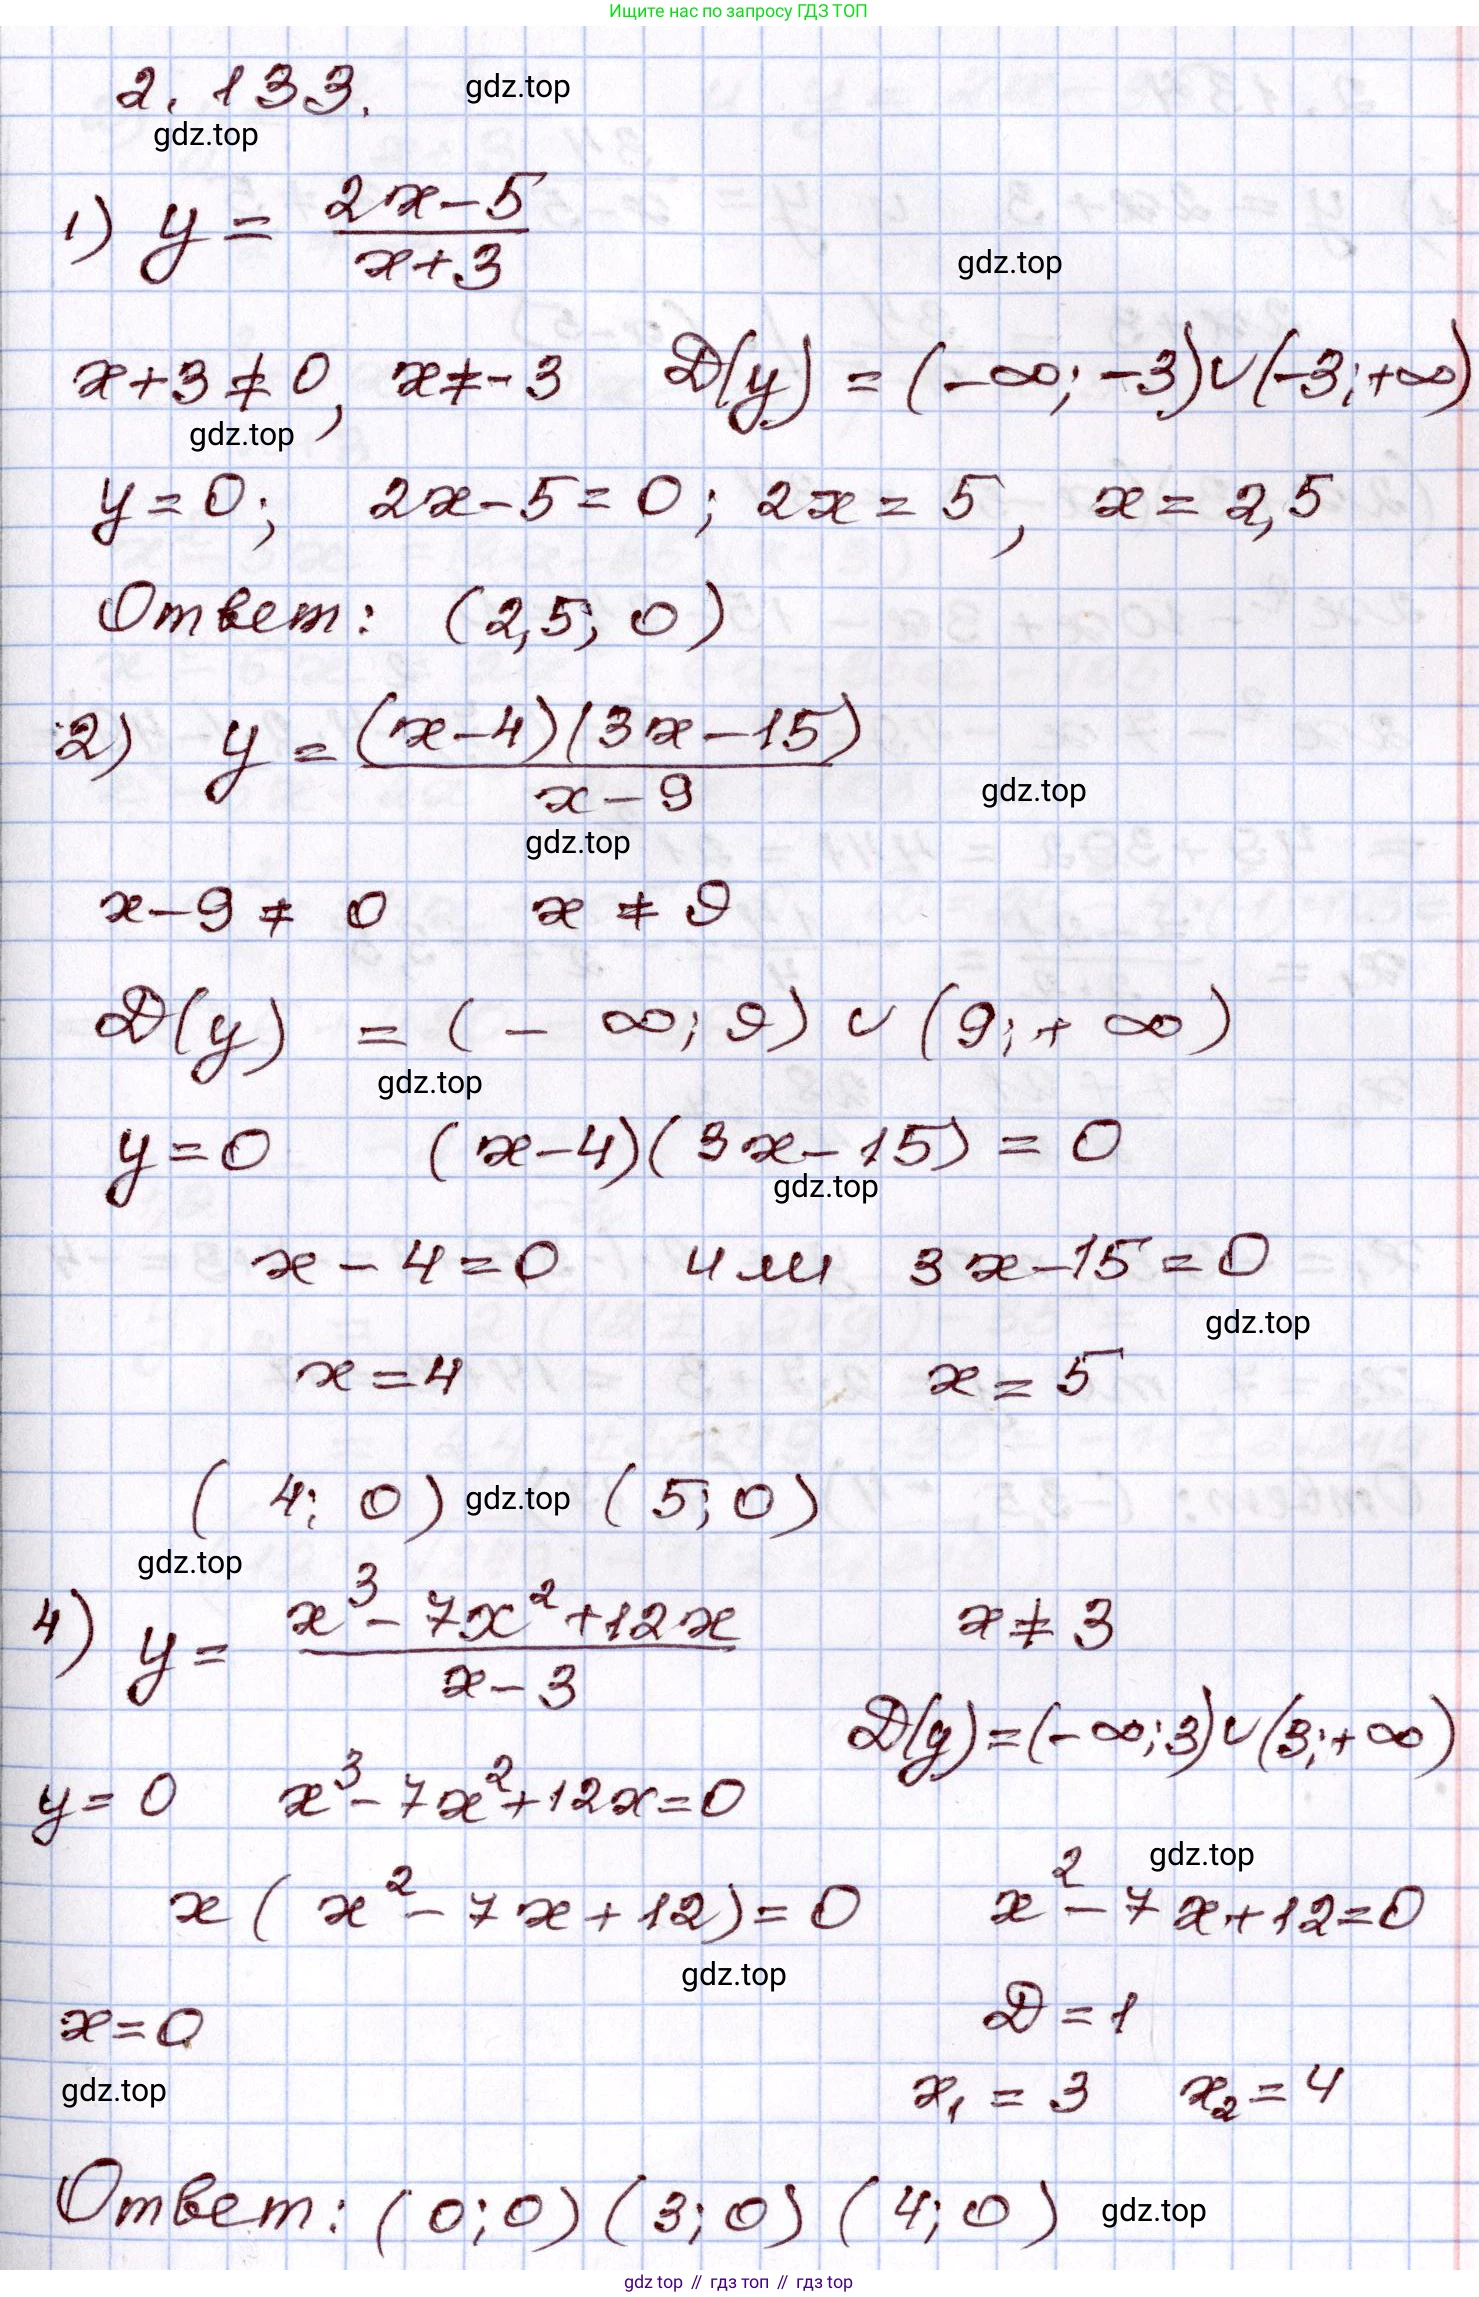 Ищите нас по запросу ГДЗ ТОП
2.133.
gdz.top
gdz.top
1) y = (2x-5)/(x+3)
gdz.top
x+3≠0, x≠-3 D(y) = (-∞; -3)∪(-3;+∞)
gdz.top
y=0; 2x-5=0; 2x=5, x=2,5
Ответ: (2,5; 0)
2) y = ((x-4)(3x-15))/(x-9)
gdz.top
gdz.top
x-9≠0 x≠9
D(y) = (-∞; 9)∪(9;+∞)
gdz.top
y=0 (x-4)(3x-15)=0
gdz.top
x-4=0 или 3x-15=0
gdz.top
x=4 x=5
(4; 0) gdz.top (5; 0)
gdz.top
4) y = (x³-7x²+12x)/(x-3) x≠3
D(y)=(-∞;3)∪(3;+∞)
y=0 x³-7x²+12x=0
gdz.top
x(x²-7x+12)=0 x²-7x+12=0
gdz.top
x=0 D=1
gdz.top
x₁=3 x₂=4
Ответ: (0;0) (3;0) (4;0) gdz.top
gdz top // гдз топ // гдз top